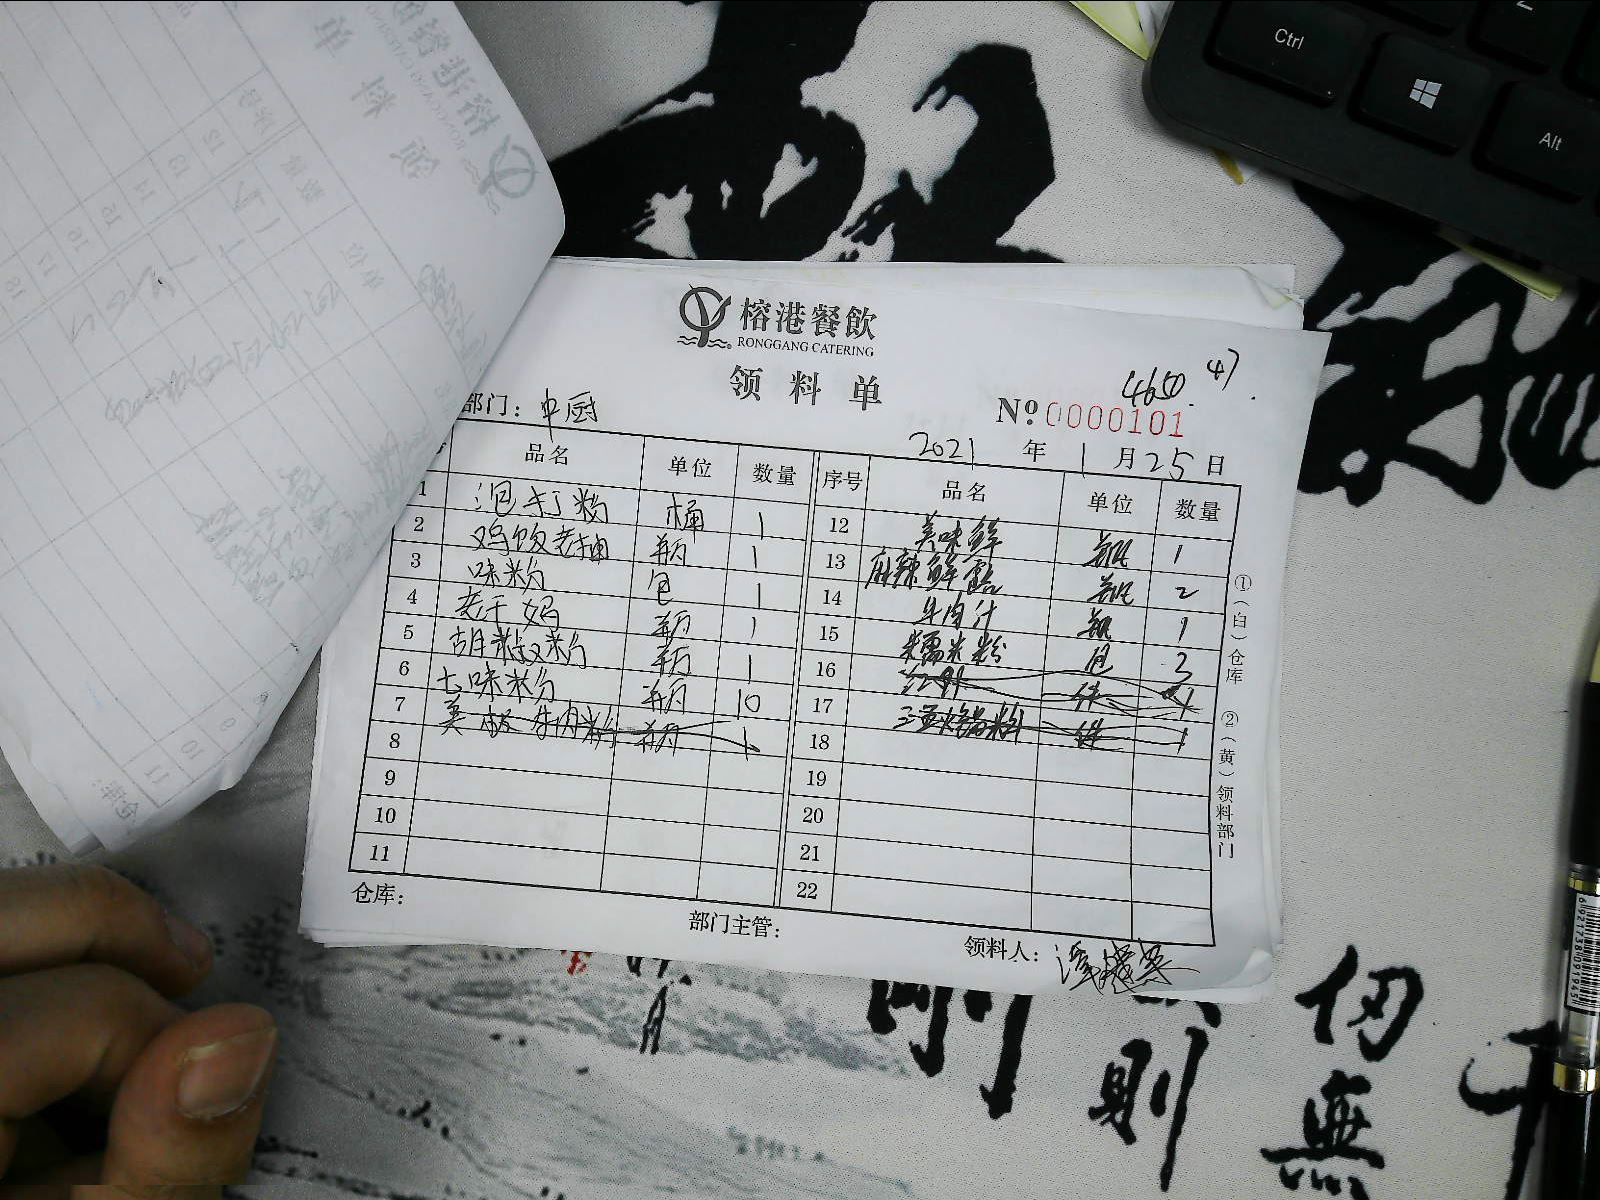 榕港餐飲
RONGGANG CATERING
领料单
4650 47
部门：中厨
№0000101
2021年1月25日
品名 单位 数量 序号 品名 单位 数量
1 泡打粉 桶 1
2 鸡饭老抽 瓶 1
3 味粉 包 1
4 老干妈 瓶 1
5 胡椒粉 瓶 1
6 七味粉 瓶 10
7 美极牛肉粉 瓶 1
8
9
10
11
12 美味鲜 瓶 1
13 麻辣鲜露 瓶 2
14 牛肉汁 瓶 1
15 糯米粉 包 3
16 件 1
17 件 1
18
19
20
21
22
①（白）仓库 ②（黄）领料部门
仓库：
部门主管：
领料人：
Ctrl
Alt
則
仞
無
6921738091945